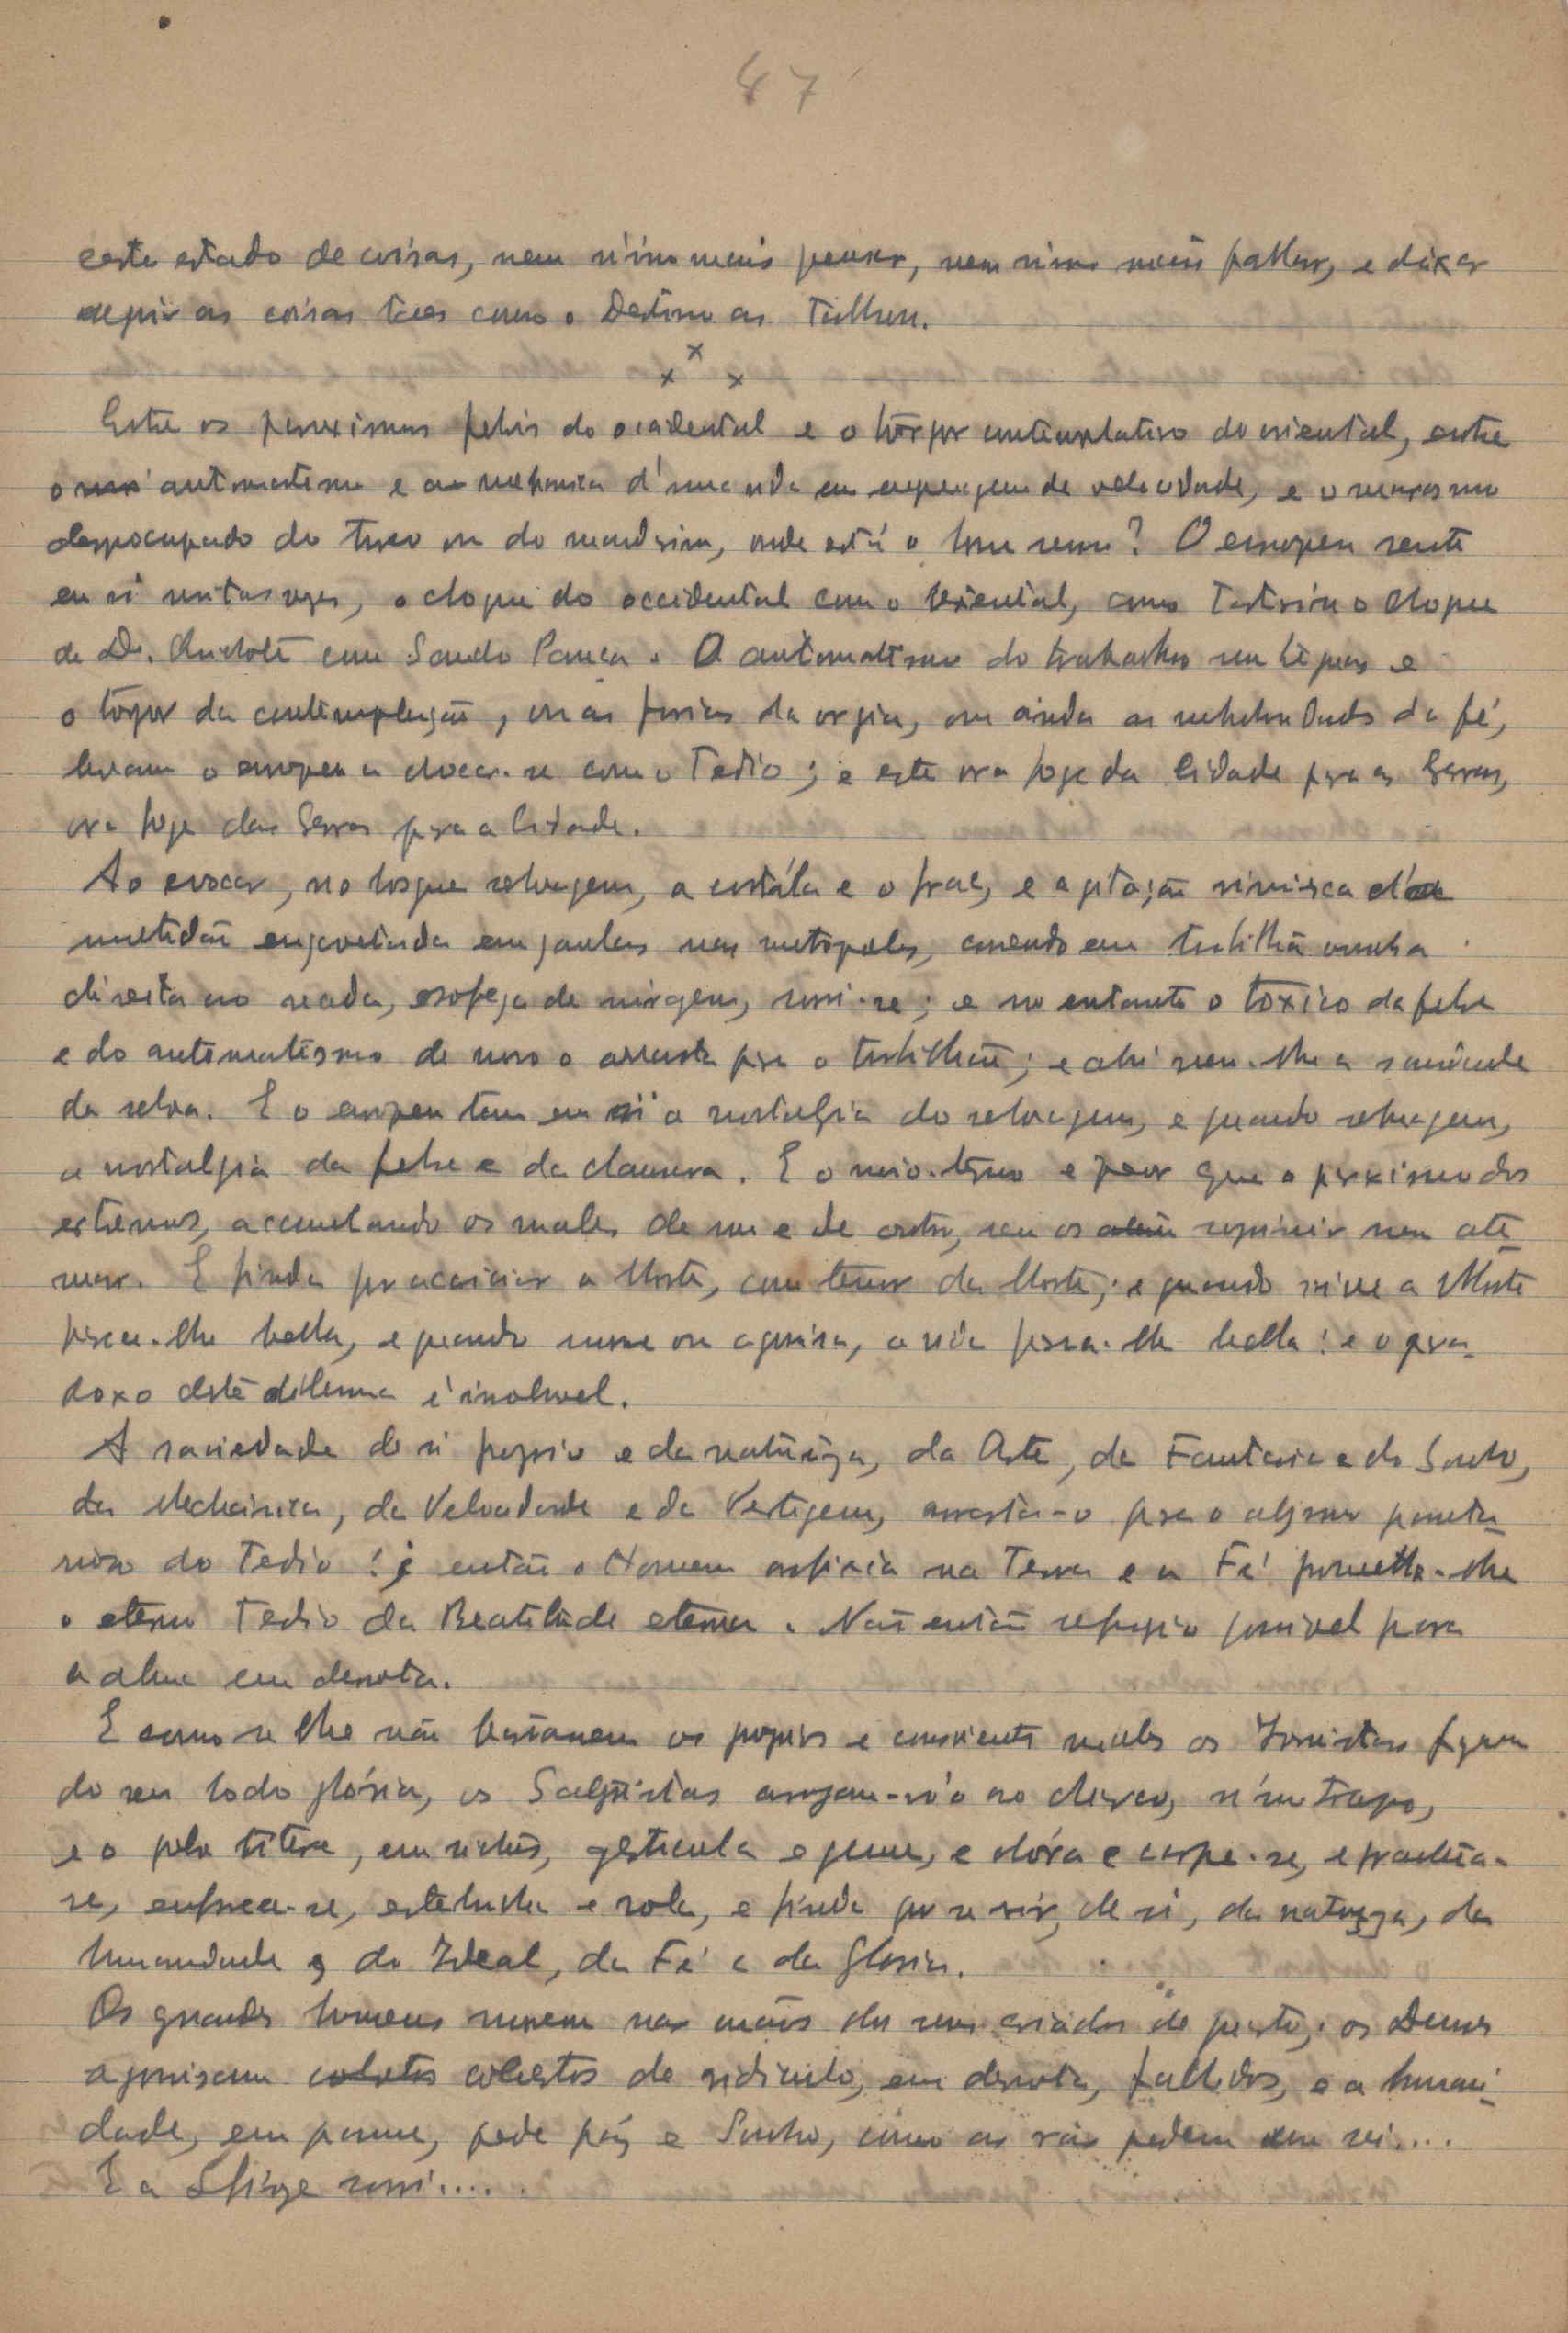 87
este estado de coisas, nem sino mais pensar, nem sino mais fallar, e deixar
seguir as coisas taes como o Destino as talhou.
x x x
Entre os paroxismos febris do occidental e o tôrpor contemplativo do oriental, entre
o automatismo e a mechanica d'uma vida em engrenagem de velocidade, e o marasmo
despreocupado do turco ou do mandarim, onde está o bom senso? O europeu sente
em si muitas vezes, o choque do occidental com o Oriental, como Tartarin o choque
de D. Quichote com Sancho Pança. O automatismo do trabalho sem tréguas e
o torpor da contemplação, ou as furias da orgia, ou ainda as da fé,
levam o europeu a chocar-se com o Tedio; e este ora foge da Cidade pra as Serras,
ora foge das Serras pra a Cidade.
Ao evocar, no bosque selvagem, a cartóla e o frac, e a agitação simiesca d'uma
multidão engavetada em jaulas nas metropoles, correndo em turbilhão numa
directa ao nada, de miragens, sorri-se; e no entanto o toxico da febre
e do automatismo de novo o arrasta pra o turbilhão; e ahi vem-lhe a saudade
da selva. E o europeu tem em si a nostalgia do selvagem, e quando selvagem,
a nostalgia da febre e da clausura. E o meio-termo é peor que o paroxismo dos
extremos, accumulando os males de um e de outro, sem os suprimir nem ate-
nuar. E finda por acariciar a Morte, com terror da Morte; e quando vive a Morte
parece-lhe bella, e quando morre ou agonisa, a vida parece-lhe bella: e o para-
doxo deste dilemma é insoluvel.
A saciedade de si proprio e da natureza, da Arte, da Fantasia e do Sonho,
da Mechanica, da Velocidade e da Vertigem, arrasta-o pra o abysmo
do Tedio! e então o Homem asfixia na Terra e a Fé promette-lhe
o eterno Tedio da Beatitude eterna. Não então refugio possivel para
a alma em derrota.
E como se lhe não bastassem os proprios e conscientes males os fazem
do seu lodo glória, os arrojam-n'o ao charco, n'um trapo,
e o pobre titere, em, gesticula e geme, e chóra e carpe-se, e
se, enfurece-se, e rola, e finda por se rir, de si, da natureza, da
humanidade e do Ideal, da Fé e da Gloria.
Os grandes homens morrem nas mãos dos seus criados de quarto; os Deuses
agonisam cobertos de ridiculo, em derrota, fallidos, e a humani-
dade, em panne, pede paz e Sonho, como as rãs pedem um rei....
E a Sfinge sorri.....